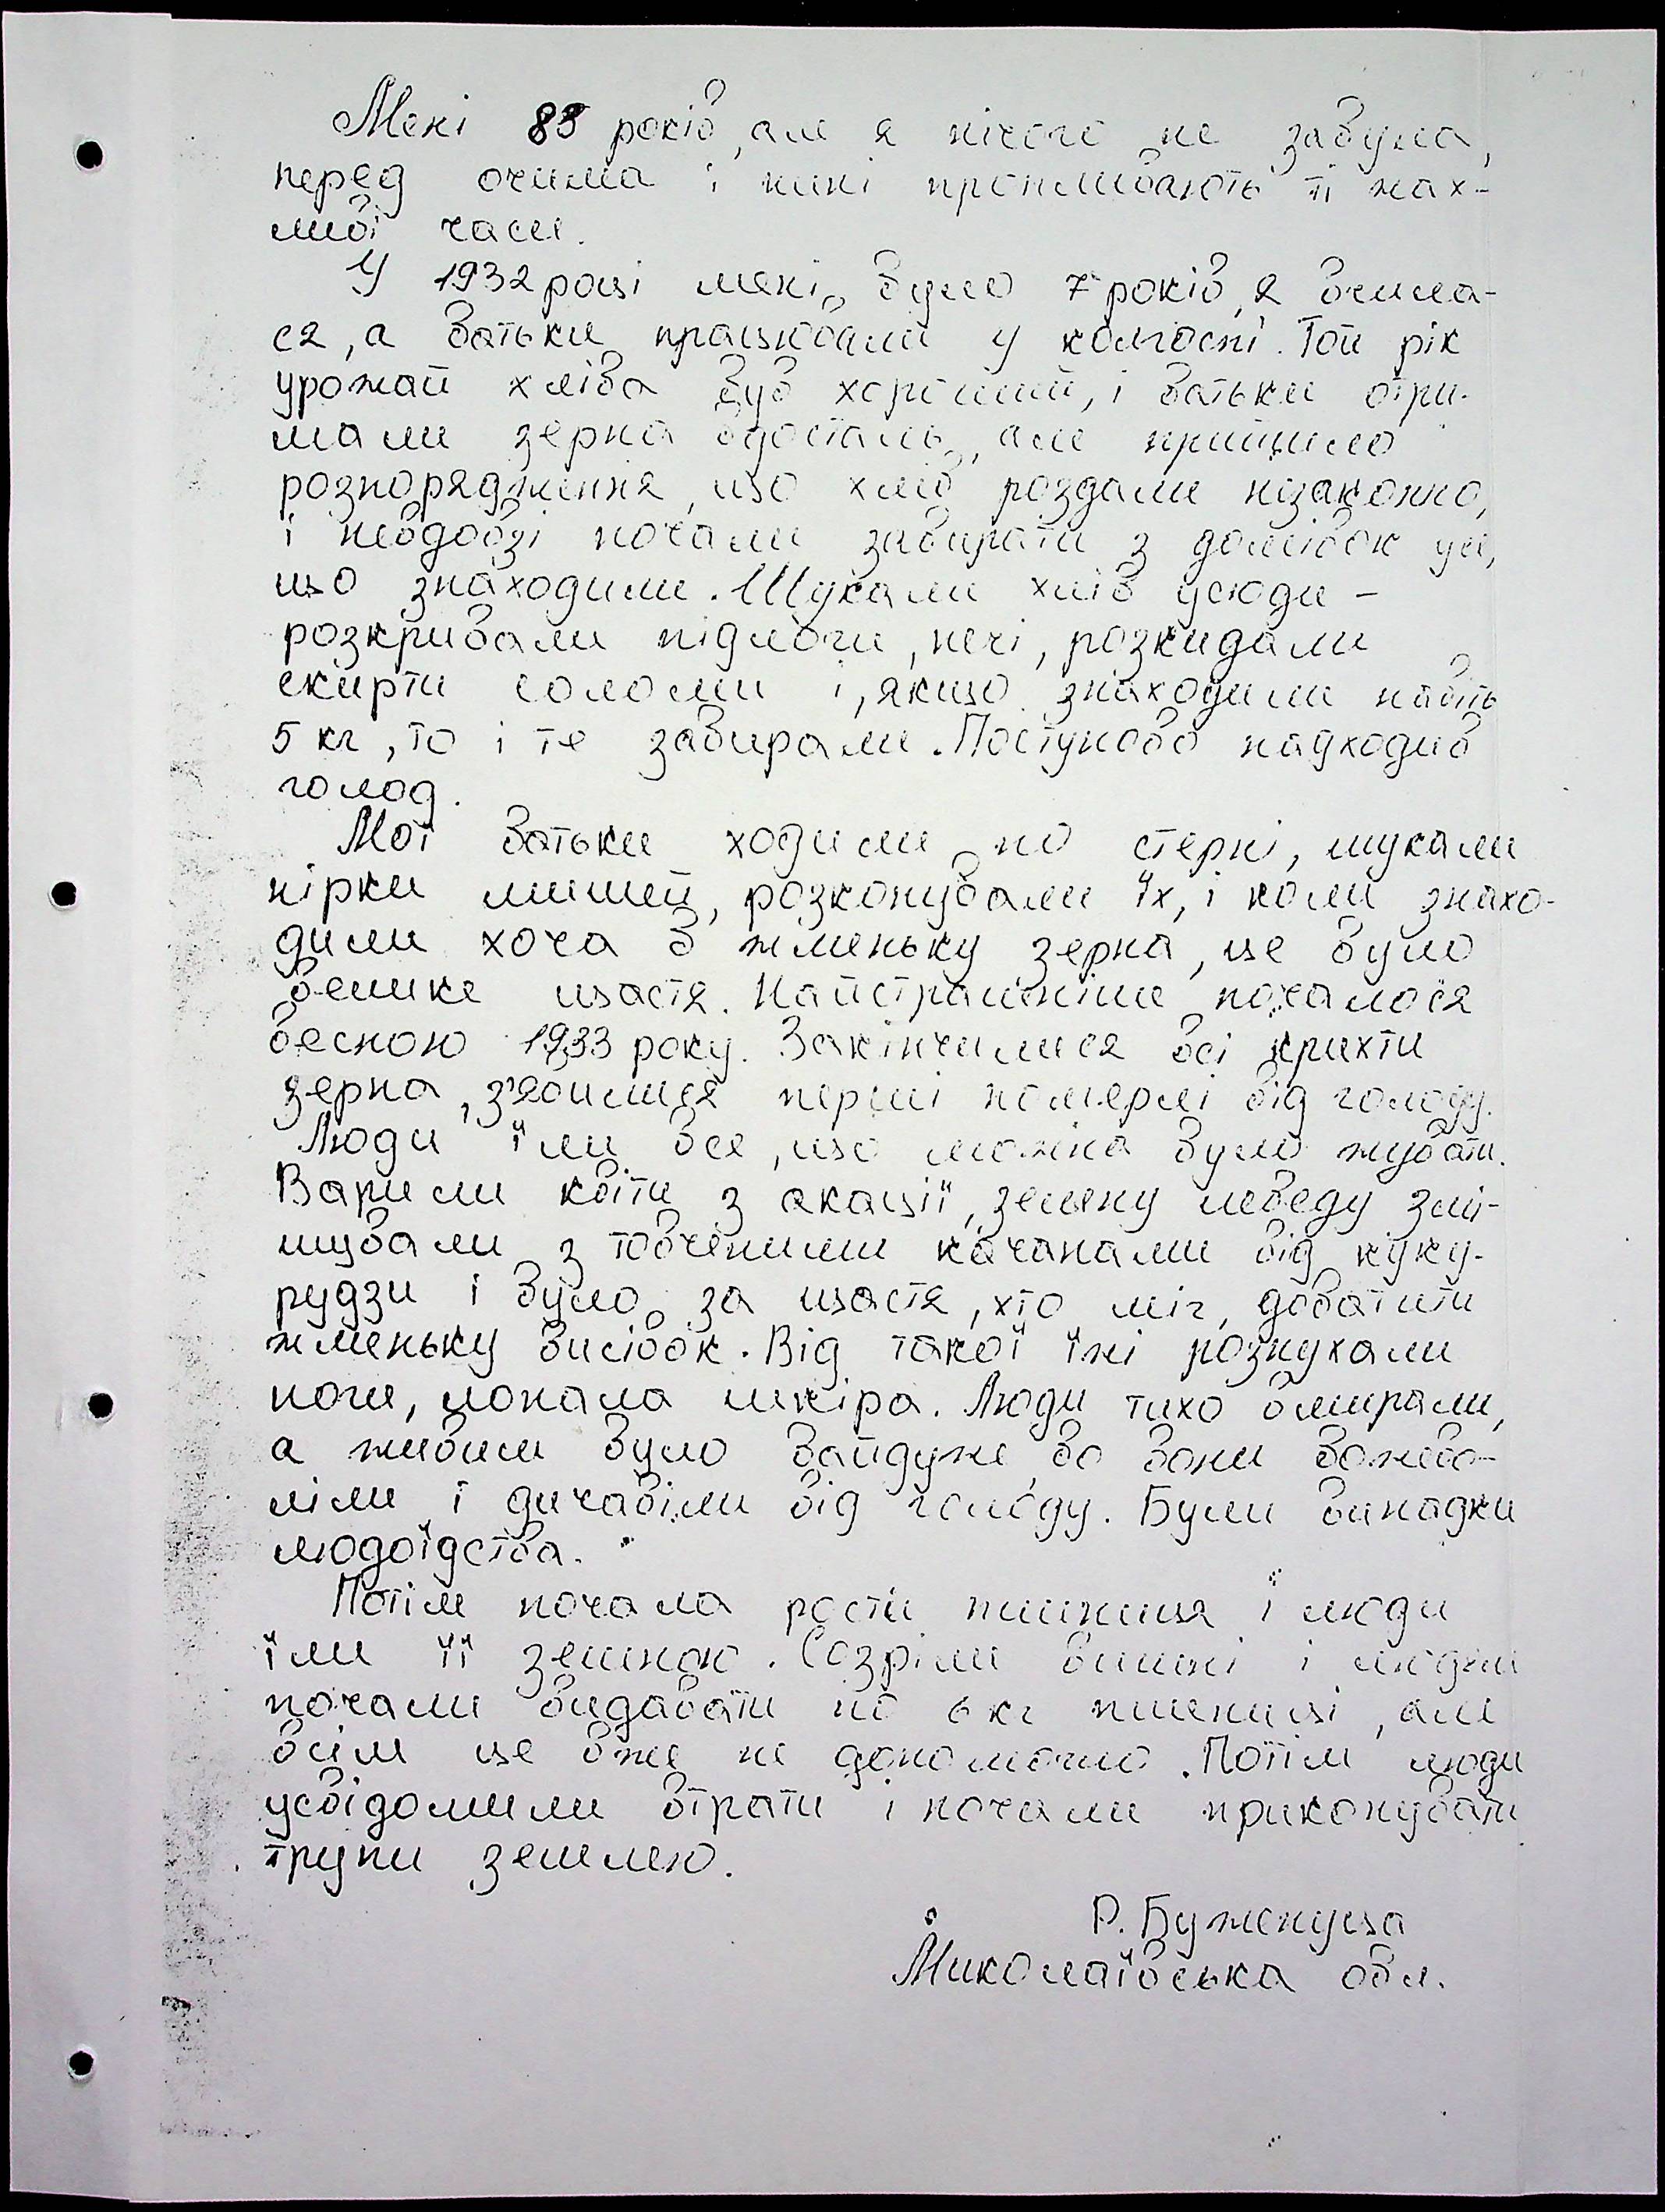 Мені 83 років, але я нічого не забула,
перед очима і нині пропливають ті жах-
ливі часи.
У 1932 році мені було 7 років, я вчила-
ся, а батьки працювали у колгоспі. Той рік
урожай хліба був хороший, і батьки отри-
мали зерна вдосталь, але прийшло
розпорядження, що хліб роздали незаконно,
і невдовзі почали забирати з домівок усе,
що знаходили. Шукали хліб усюди –
розкривали підлоги, печі, розкидали
скирти соломи і, якщо знаходили навіть
5 кг, то і те забирали. Поступово надходив
голод.
Мої батьки ходили по стерні, шукали
нірки мишей, розкопували їх, і коли знахо-
дили хоча б жменьку зерна, це було
велике щастя. Найстрашніше почалося
весною 1933 року. Закінчилися всі крихти
зерна, з'явилися перші померлі від голоду.
Люди їли все, що можна було жувати.
Варили квіти з акації, зелену лебеду змі-
шували з товченими качанами від куку-
рудзи і було за щастя, хто міг добавити
жменьку висівок. Від такої їжі розпухали
ноги, лопала шкіра. Люди тихо вмирали,
а живим було байдуже, бо вони божево-
ліли і дичавіли від голоду. Були випадки
людоїдства.
Потім почала рости пшениця і люди
їли її зеленою. Созріли вишні і людям
почали видавати по 6 кг пшениці, але
всім це вже не допомогло. Потім люди
усвідомили втрати і почали прикопувати
трупи землею.
Р. Буженуца
Миколаївська обл.